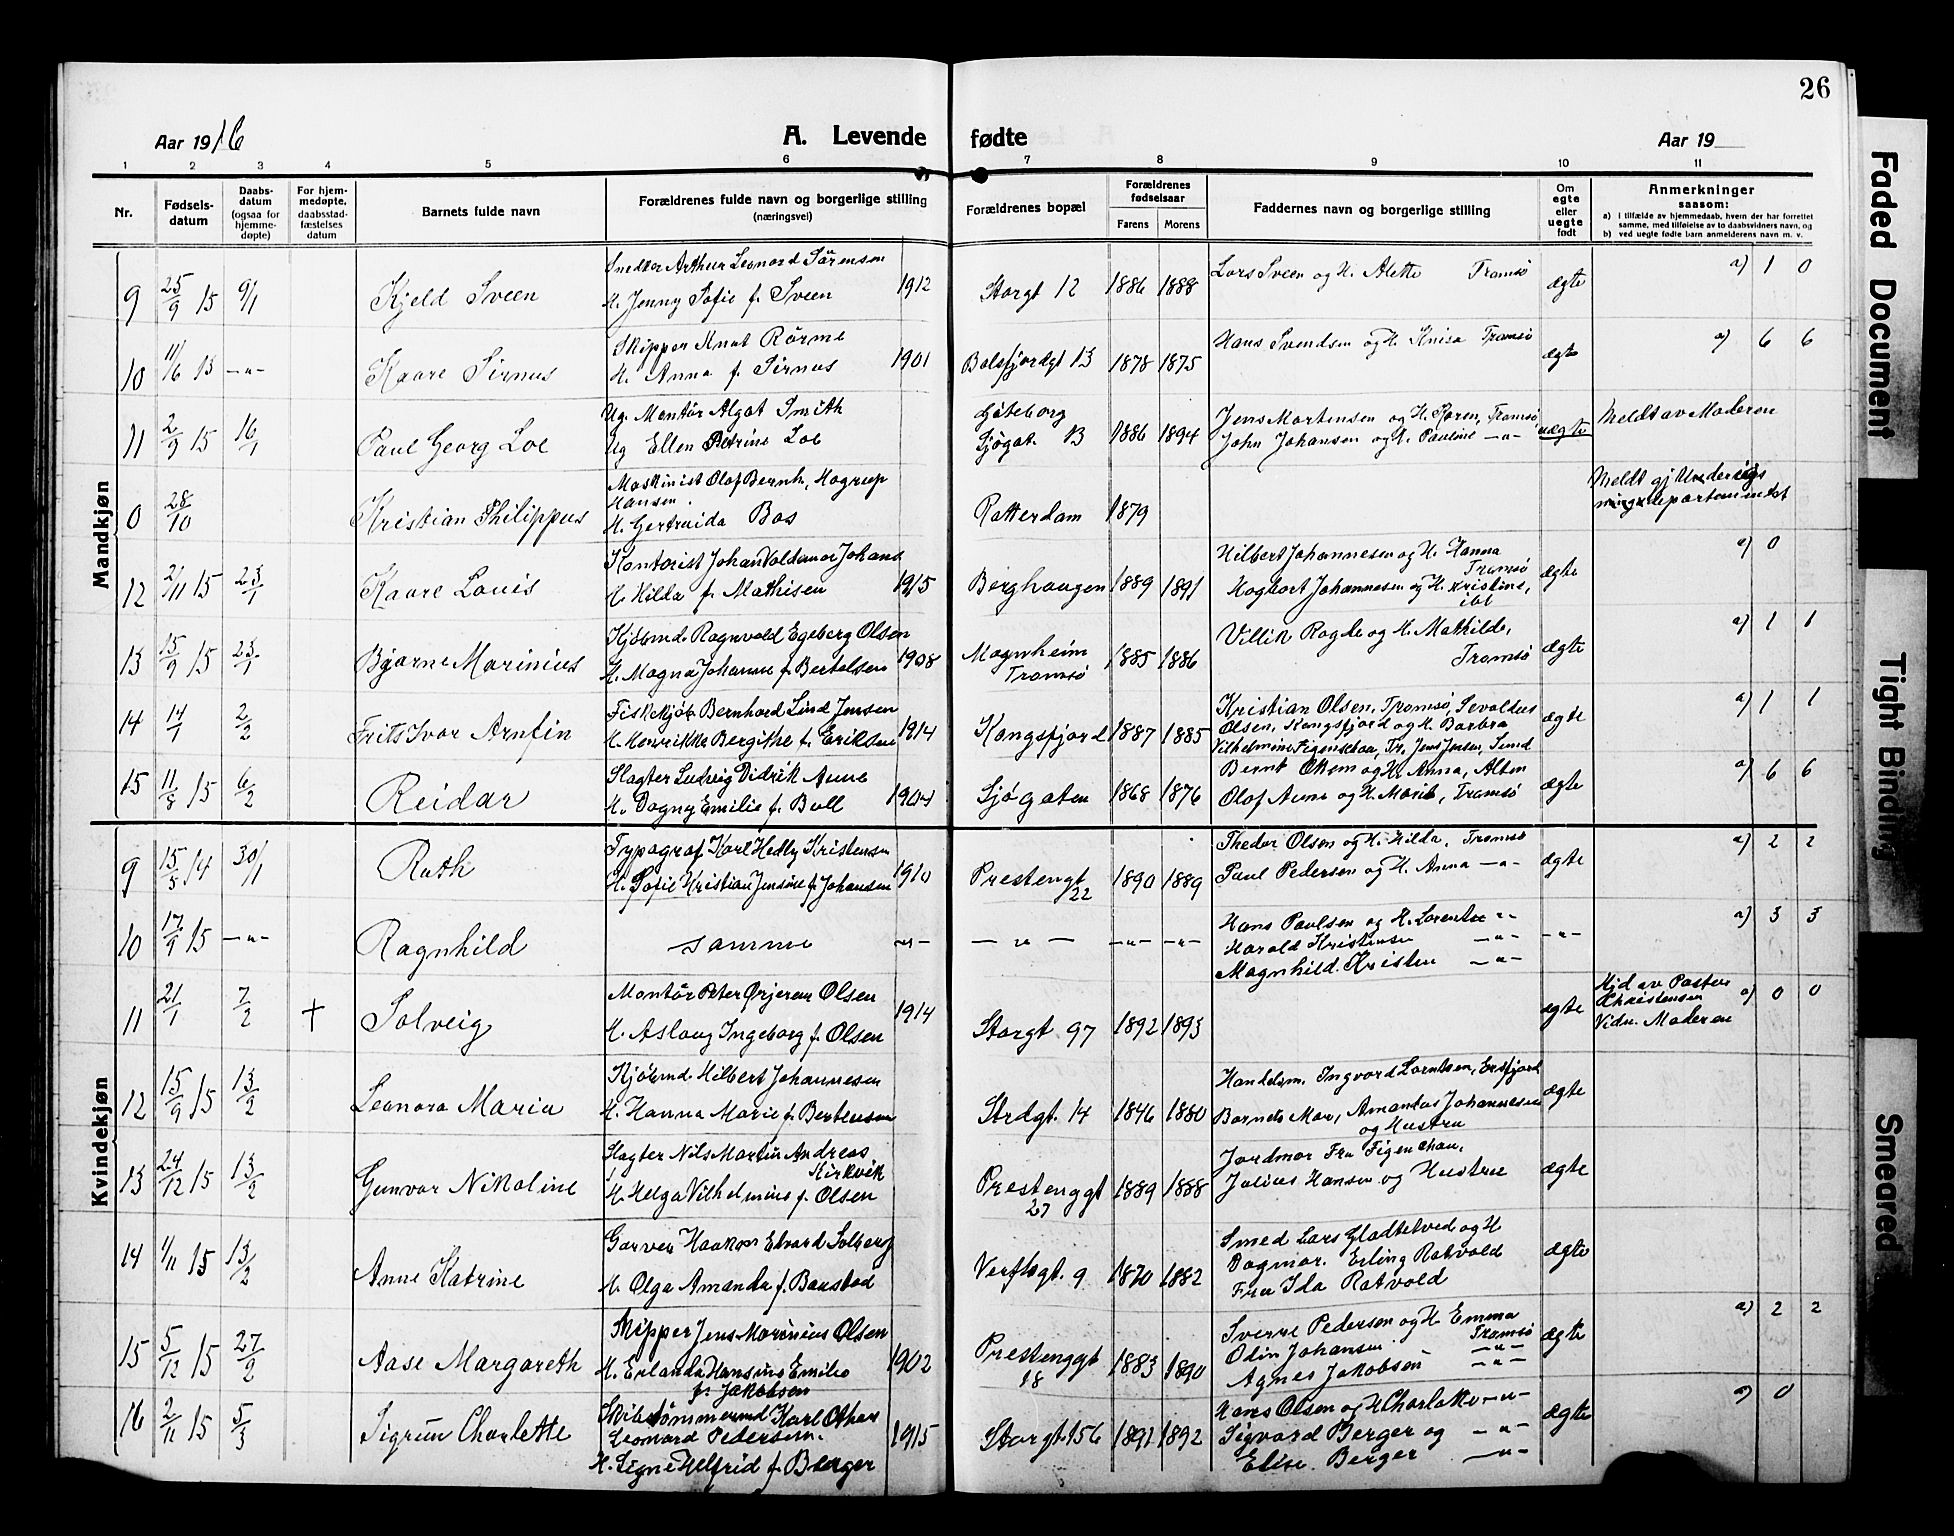 26
Aar 1916
A. Levende fødte
Aar 19
1 2 3 4 5 6 7 8 9 10 11
Nr.
Fødsels-
datum
Daabs-
datum
(ogsaa for
hjemme-
døpte)
For hjem-
medøpte,
daabsstad-
fæstelses
datum
Barnets fulde navn
Forældrenes fulde navn og borgerlige stilling
(næringsvei)
Forældrenes bopæl
Forældrenes
fødselsaar
Farens
Morens
Faddernes navn og borgerlige stilling
Om
egte
eller
uegte
født
Anmerkninger
saasom:
a) i tilfælde av hjemmedaab, hvem der har forrettet
samme, med tilføielse av to daabsvidners navn, og
b) ved uegte fødte barn anmelderens navn m. v.
Mandkjøn
9 25/9 15 9/1 Kjeld Sveen
Snedker Arthur Leonard Sørensen
H. Jenny Sofie f. Sveen 1912
Storgt 12 1886 1888
Lars Sveen og H. Alette Tromsø
ægte a) 1 0
10 11/6 13 -"- Kaare Sirnus
Skipper Knut Rørme
H. Anna f. Sirnus 1901
Balsfjordgt 13 1878 1875
Hans Svendsen og H. Tromsø
ægte a) 6 6
11 2/9 15 16/1 Paul Georg Loe
Ug. Montør Algot Smith
Ug Ellen Petrine Loe
Gøteborg
Sjøgat. 13 1886 1894
Jens Mortensen og H. Karen, Tromsø,
John Johansen og H. Pauline -"-
uægte
Meldt av Moderen
0 28/10 Kristian Philippus
Maskinist Olof Bernh. Hagrup
Hansen.
H. Gertruida Bos
Rotterdam 1879
Meldt gj Undervis
ningsdepartementet
12 2/11 15 23/1 Kaare Louis
Kontorist Johan Valdemar Johans
H. Hilda f. Mathisen 1915
Berghaugen 1889 1891
Hilbert Johannesen og H. Hanna
Tromsø
Hagbart Johannesen og H. Kristine,
ibt
ægte a) 0
13 15/9 15 23/1 Bjarne Marinius
Kjøbmd. Ragnvald Egeberg Olsen
H. Magna Johanne f. Bertelsen 1908
Magnheim
Tromsø 1885 1886
Villik Ragde og H. Mathilde,
Tromsø
ægte a) 1 1
14 14/1 2/2 Frits Ivar Arnfin
Fiskekjøb. Bernhard Lind Jensen
H. Henrikke Bergithe f. Eriksen 1914
Kongsfjord 1887 1885
Kristian Olsen, Tromsø, Sevaldus
Olsen, Kongsfjord og H. Barbra
Vilhelmine Figenschou, Tr. Jens Jensen,
ægte a) 1 1
15 11/8 15 6/2 Reidar
Slagter Ludvig Didrik Aune
H. Dagny Emilie f. Bull 1904
Sjøgaten 1868 1876
Bernt og H. Anna, Alten
Olaf Aune og H. Marie, Tromsø
ægte a) 6 6
Kvindekjøn
9 15/5 14 30/1 Ruth
Typograf Karl Hedly Kristensen
H. Sofie Kristian Jensine f Johansen 1910
Prestengt
22 1890 1889
Thedor Olsen og H. Hilda, Tromsø
Paul Pedersen og H. Anna -"-
ægte a) 2 2
10 17/9 15 -"- Ragnhild
samme -"-
-"- -"- -"-
Hans Paulsen og H. Lorentze -"-
Harald Kristensen -"-
Magnhild Kristen -"-
-"- a) 3 3
11 21/1 7/2 † Solveig
Montør Peter Ørjeren Olsen
H. Aslaug Ingeborg f. Olsen 1914
Storgt 97 1892 1893
ægte
Hjd av Pastor
Christensen
Vidn. Moderen
a) 0 0
12 15/9 15 13/2 Leonora Maria
Kjøbmd. Hilbert Johannesen
H. Hanna Marie f. Bertensen
Strdgt. 14 1846 1880
Handelsm. Ingvard Lorntsen, Ersfjord
Barnets Mor, Amandus Johannesen
og Hustru
ægte
13 24/12 15 13/2 Gunvor Nikoline
Slagter Nils Martin Andreas
Kirkvik
H. Helga Vilhelmine f. Olsen
Prestenggt
27 1889 1888
Jordmor Fru Figenschau,
Julius Hansen og Hustru
ægte
14 1/11 15 13/2 Anne Katrine
Garver Haakon Edvard Solberg
H. Olga Amanda f. Baustad
Verftsgt. 9 1870 1882
Smed Lars Gladtetved og H
Dagmar. Erling Ratvold
Fru Ida Ratvold
ægte
15 5/12 15 27/2 Aase Margareth
Skipper Jens Marinius Olsen
H. Erlanda Hansine Emilie
f. Jakobsen 1902
Prestenggt
18 1883 1890
Sverre Pedersen og H. Emma
Tromsø
Odin Johansen -"-
Agnes Jakobsen -"-
ægte a) 2 2
16 2/11 15 5/3 Sigrun Charlotte
Skibstømmermd Karl Othar
Leonard Pedersen.
H. Signe Helfrid f. Berger 1915
Storgt. 156 1891 1892
Hans Olsen og H Charlotte -"-
Sigvard Berger og -"-
Elise Berger -"-
ægte a) 0
Faded Document
Tight Binding
Smeared